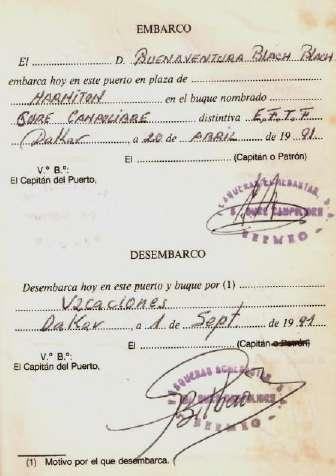 EMBARCO
El .................... D. BUENAVENTURA BLACH BLACH
embarca hoy en este puerto en plaza de ..............................
MARMITON en el buque nombrado
BURE CAMPOLIBRE distintiva E.F.T.F
Dakar a 20 de ABRIL de 1991
El .............................. (Capitán o Patrón)
V.º B.º:
El Capitán del Puerto,
BURE CAMPOLIBRE
BERMEO
DESEMBARCO
Desembarca hoy en este puerto y buque por (1) ....................
Vacaciones
Dakar a 1 de Sept de 1991
El .............................. (Capitán o Patrón)
V.º B.º:
El Capitán del Puerto,
BERMEO
(1) Motivo por el que desembarca.